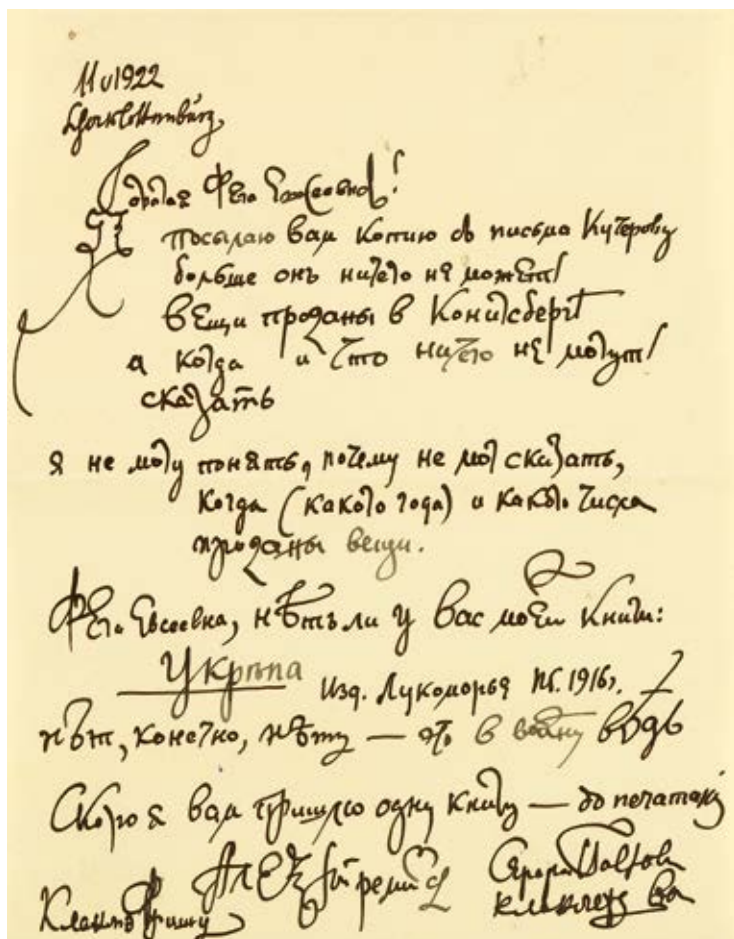 11 V 1922
Charlottenburg,
Дорогая Фега Евсеевна!
Я посылаю вам копию съ письма Кучерову
больше онъ ничего не можетъ
вещи проданы в Кенигсберг
а когда и что ничего не могутъ
сказать
я не могу понять, почему не мог сказать,
когда (какого года) и какого числа
проданы вещи.
Фега Евсеевна, нѣтъ ли у вас моей книги:
Укрѣпа Изд. Лукоморья Пб. 1916 г.
нѣт, конечно, нѣту — это в войну вѣдь
Скоро я вам пришлю одну книгу — до печатаю
Алексѣй Ремизов Серафима Павловна
Фришу кланяется вам